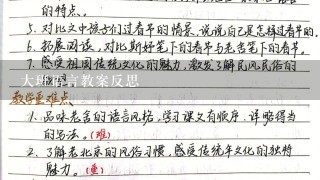 的特点。
5. 对比文中孩子们过春节的情景,说说自己是怎样过春节的。
6. 拓展阅读,对比斯妤笔下的春节与老舍笔下的春节。
7. 感受祖国传统文化的魅力,激发了解民风民俗的
大班语言教案反思
教学重难点
1. 品味老舍的语言风格,学习课文有顺序、详略得当
的写法。(难)
2. 了解老北京的风俗习惯,感受传统年文化的独特
魅力。(重)